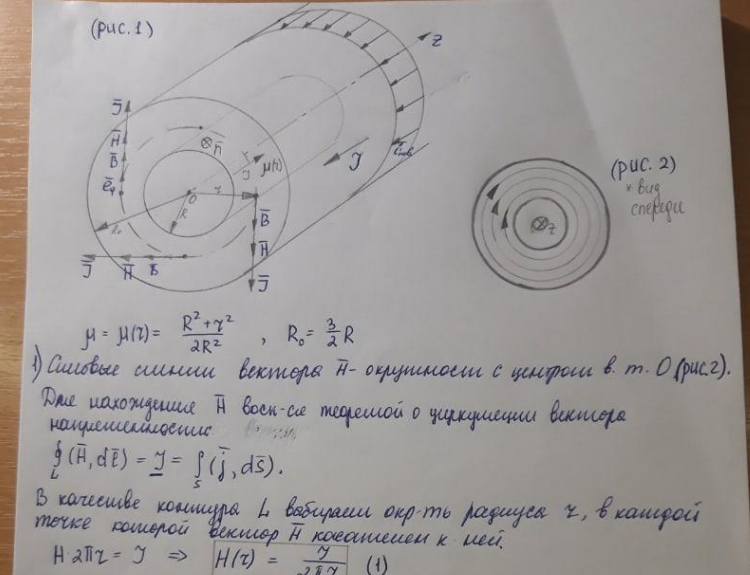 (рис. 1)
z
J̄
H̄
B̄
ē
n̄
μ(r)
J
r
O
R
B̄
H̄
J̄
J̄ H̄ B̄
(рис. 2)
* вид
спереди
z
μ = μ(r) = (R² + r²) / 2R² , R₀ = 3/2 R
1) Силовые линии вектора H̄ - окружности с центром в т. O (рис. 2).
Для нахождение H̄ восп-ся теоремой о циркуляции вектора
напряженностис
∮_L (H̄, dl̄) = J = ∫_S (j̄, ds̄).
В качестве контура L выбираем окр-ть радиуса r, в каждой
точке которой вектор H̄ касателен к ней.
H · 2πr = J ⇒ H(r) = J / 2πr (1)